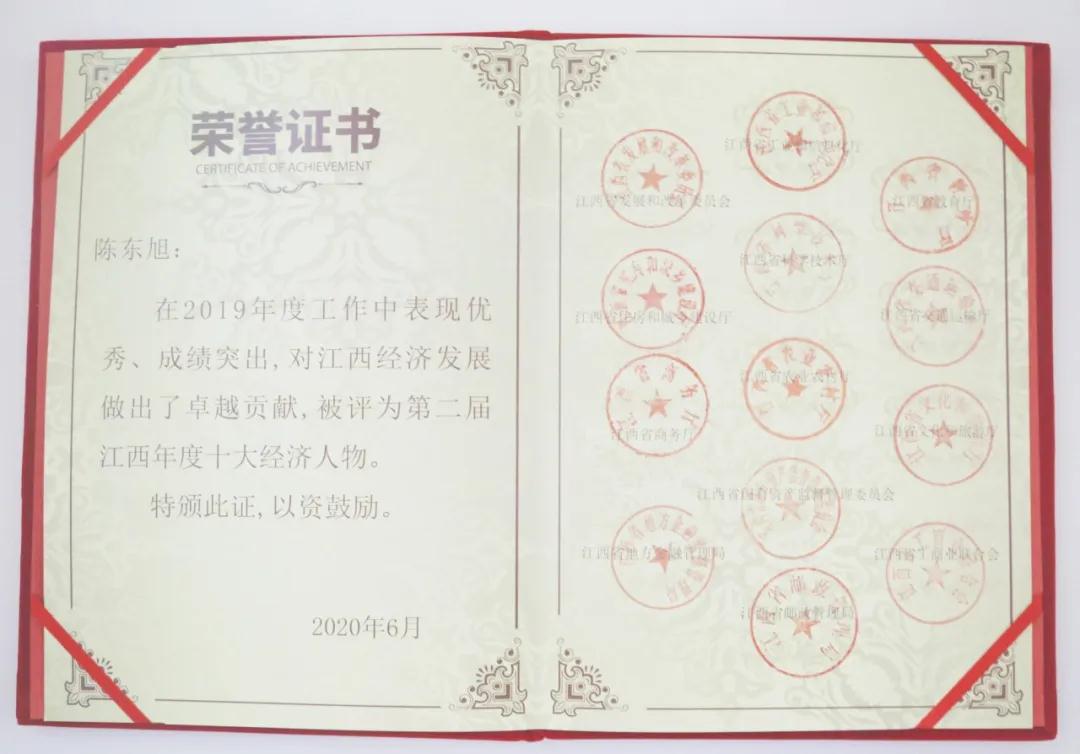 荣誉证书
CERTIFICATE OF ACHIEVEMENT
陈东旭：
在2019年度工作中表现优
秀、成绩突出，对江西经济发展
做出了卓越贡献，被评为第二届
江西年度十大经济人物。
特颁此证，以资鼓励。
2020年6月
江西省发展和改革委员会
江西省工业和信息化厅
江西省教育厅
江西省科学技术厅
江西省住房和城乡建设厅
江西省交通运输厅
江西省农业农村厅
江西省商务厅
江西省文化和旅游厅
江西省国有资产监督管理委员会
江西省地方金融管理局
江西省工商业联合会
江西省邮政管理局